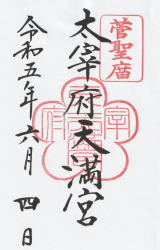 菅聖廟
太宰府天満宮
令和五年六月四日